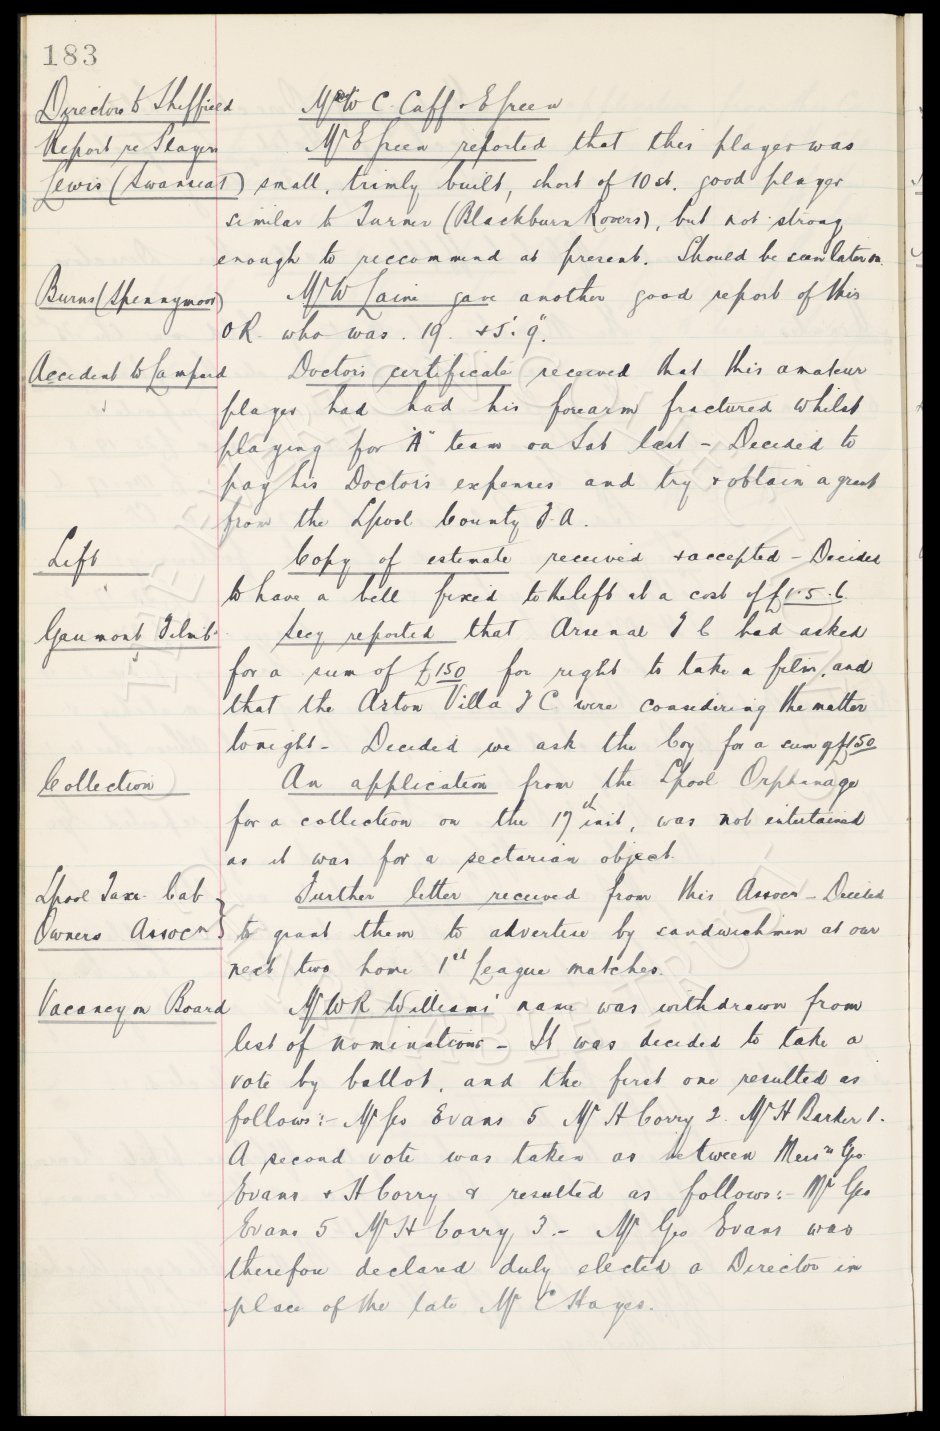 183
Directors to Sheffield Messrs W C Cuff & E Green
Report re Players Mr E Green reported that this player was
Lewis (Swansea T) small, trimly built, short of 10 st. good player
similar to Turner (Blackburn Rovers), but not strong
enough to reccommend at present. Should be seen later on.
Burns (Spennymoor) Mr W Laine gave another good report of this
OR. who was. 19. & 5'. 9".
Accident to Lampard Doctor's certificate received that this amateur
player had had his forearm fractured whilst
playing for "A" team on Sat last - Decided to
pay his Doctor's expenses and try & obtain a grant
from the Lpool County F.A.
Lift Copy of estimate received & accepted - Decided
to have a bell fixed to the lift at a cost of £1.5.6
Gaumont Film Secy reported that Arsenal F C had asked
for a sum of £150 for right to take a film, and
that the Aston Villa F C were considering the matter
tonight - Decided we ask the Coy for a sum of £150
Collection An application from the Lpool Orphanage
for a collection on the 17th inst, was not entertained
as it was for a sectarian object.
Lpool Taxi Cab Further letter received from this Assocn - Decided
Owners Assocn } to grant them to advertise by sandwichmen at our
next two home 1st League matches.
Vacancy on Board Mr W R Williams' name was withdrawn from
list of nominations - It was decided to take a
vote by ballot, and the first one resulted as
follows:- Mr Geo Evans 5 Mr H Corry 2. Mr H Barker 1.
A second vote was taken as between Messrs Geo
Evans & H Corry & resulted as follows:- Mr Geo
Evans 5 Mr H Corry 3.- Mr Geo Evans was
therefore declared duly elected a Director in
place of the late Mr C Hayes.